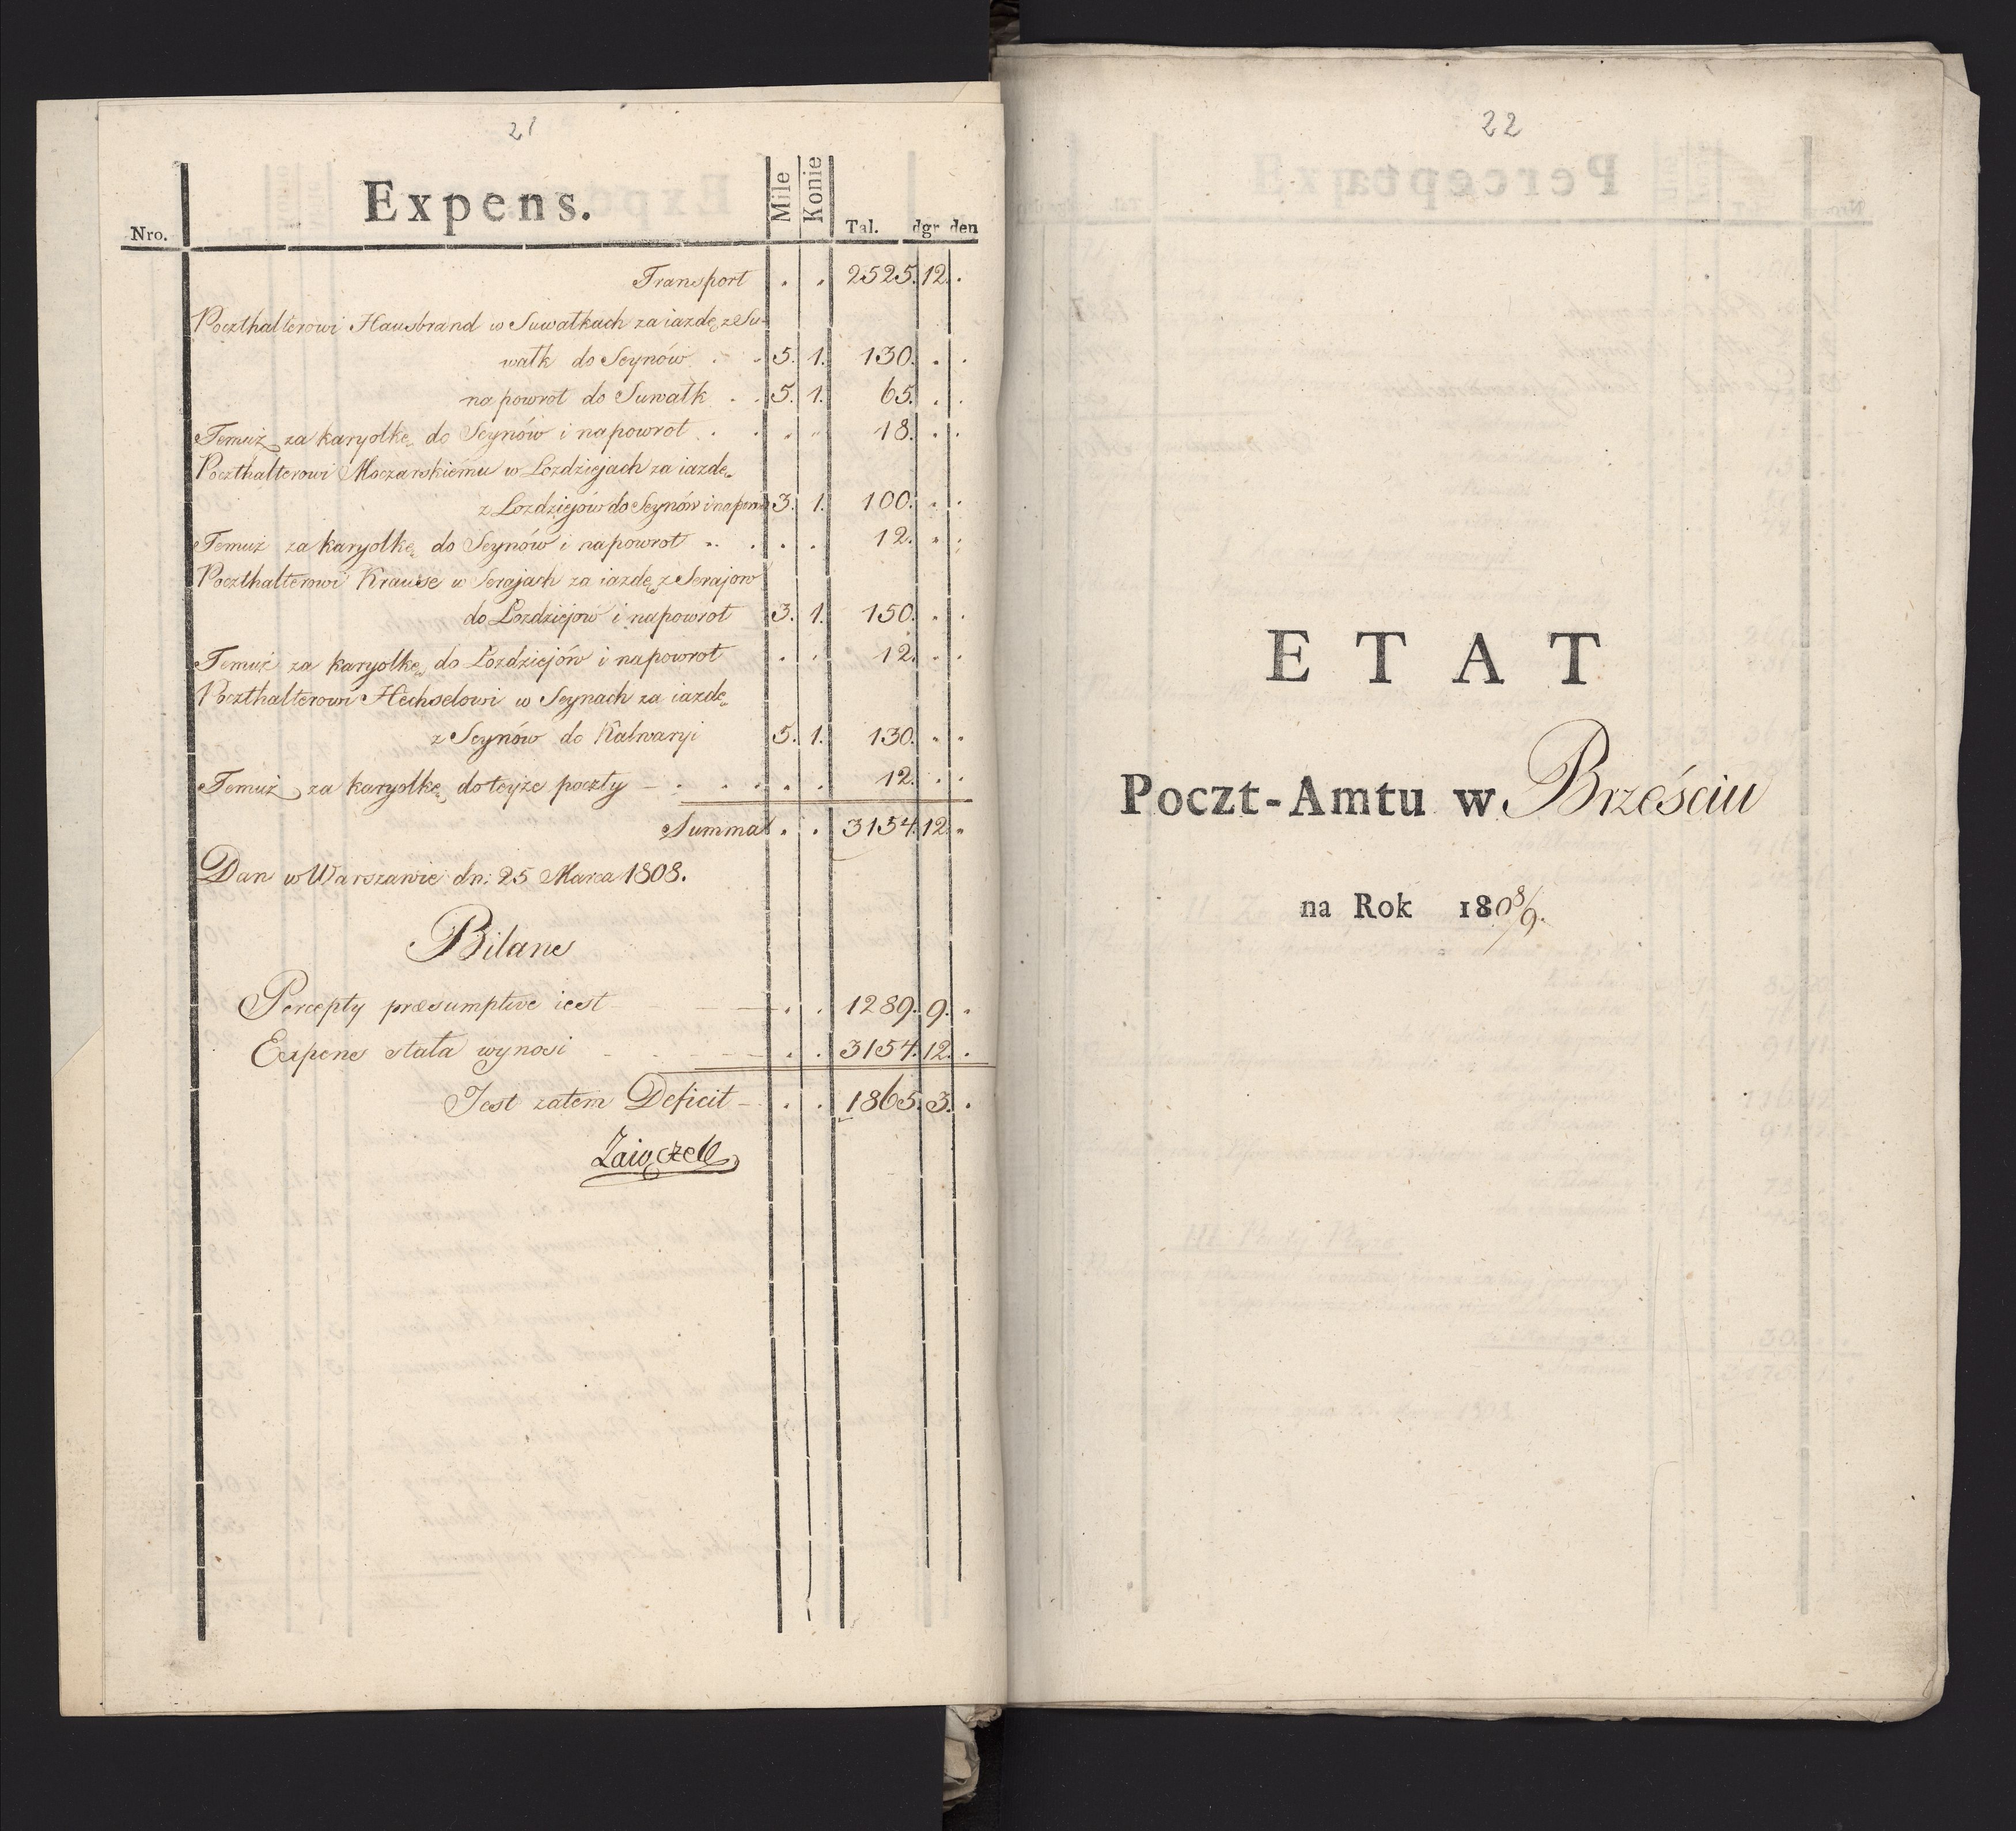 21
Nro. Expens. Mile Konie Tal. dgr den
Transport . . 2525. 12. .
Poczthalterowi Hausbrand w Suwałkach za iazdę z Su-
wałk do Seynów . . 5. 1. 130. . .
na powrot do Suwałk . . 5. 1. 65. . .
Temuż za karyolkę do Seynów i napowrot . . . . 18. . .
Poczthalterowi Moczarskiemu w Łozdziejach za iazdę
z Łozdziejów do Seynów i napow 3. 1. 100. . .
Temuż za karyolkę do Seynów i napowrot . . . . 12. . .
Poczthalterowi Krause w Serajach za iazdę z Serajow
do Łozdziejow i napowrot 3. 1. 150. . .
Temuż za karyolkę do Łozdziejów i napowrot . . 12. . .
Poczthalterowi Hechselowi w Seynach za iazdę
z Seynów do Kalwaryi 5. 1. 130. . .
Temuż za karyolkę do teyże poczty - . . . . . 12. . .
Summa . . 3154. 12. .
Dan w Warszawie dn: 25 Marca 1808.
Bilans
Percepty præsumptive iest . . 1289. 9. .
Expens stała wynosi . . 3154. 12. .
Jest zatem Deficit - . . 1865. 3. .
Zaiączek
22
ETAT
Poczt-Amtu w Brześciu
na Rok 1808/9.